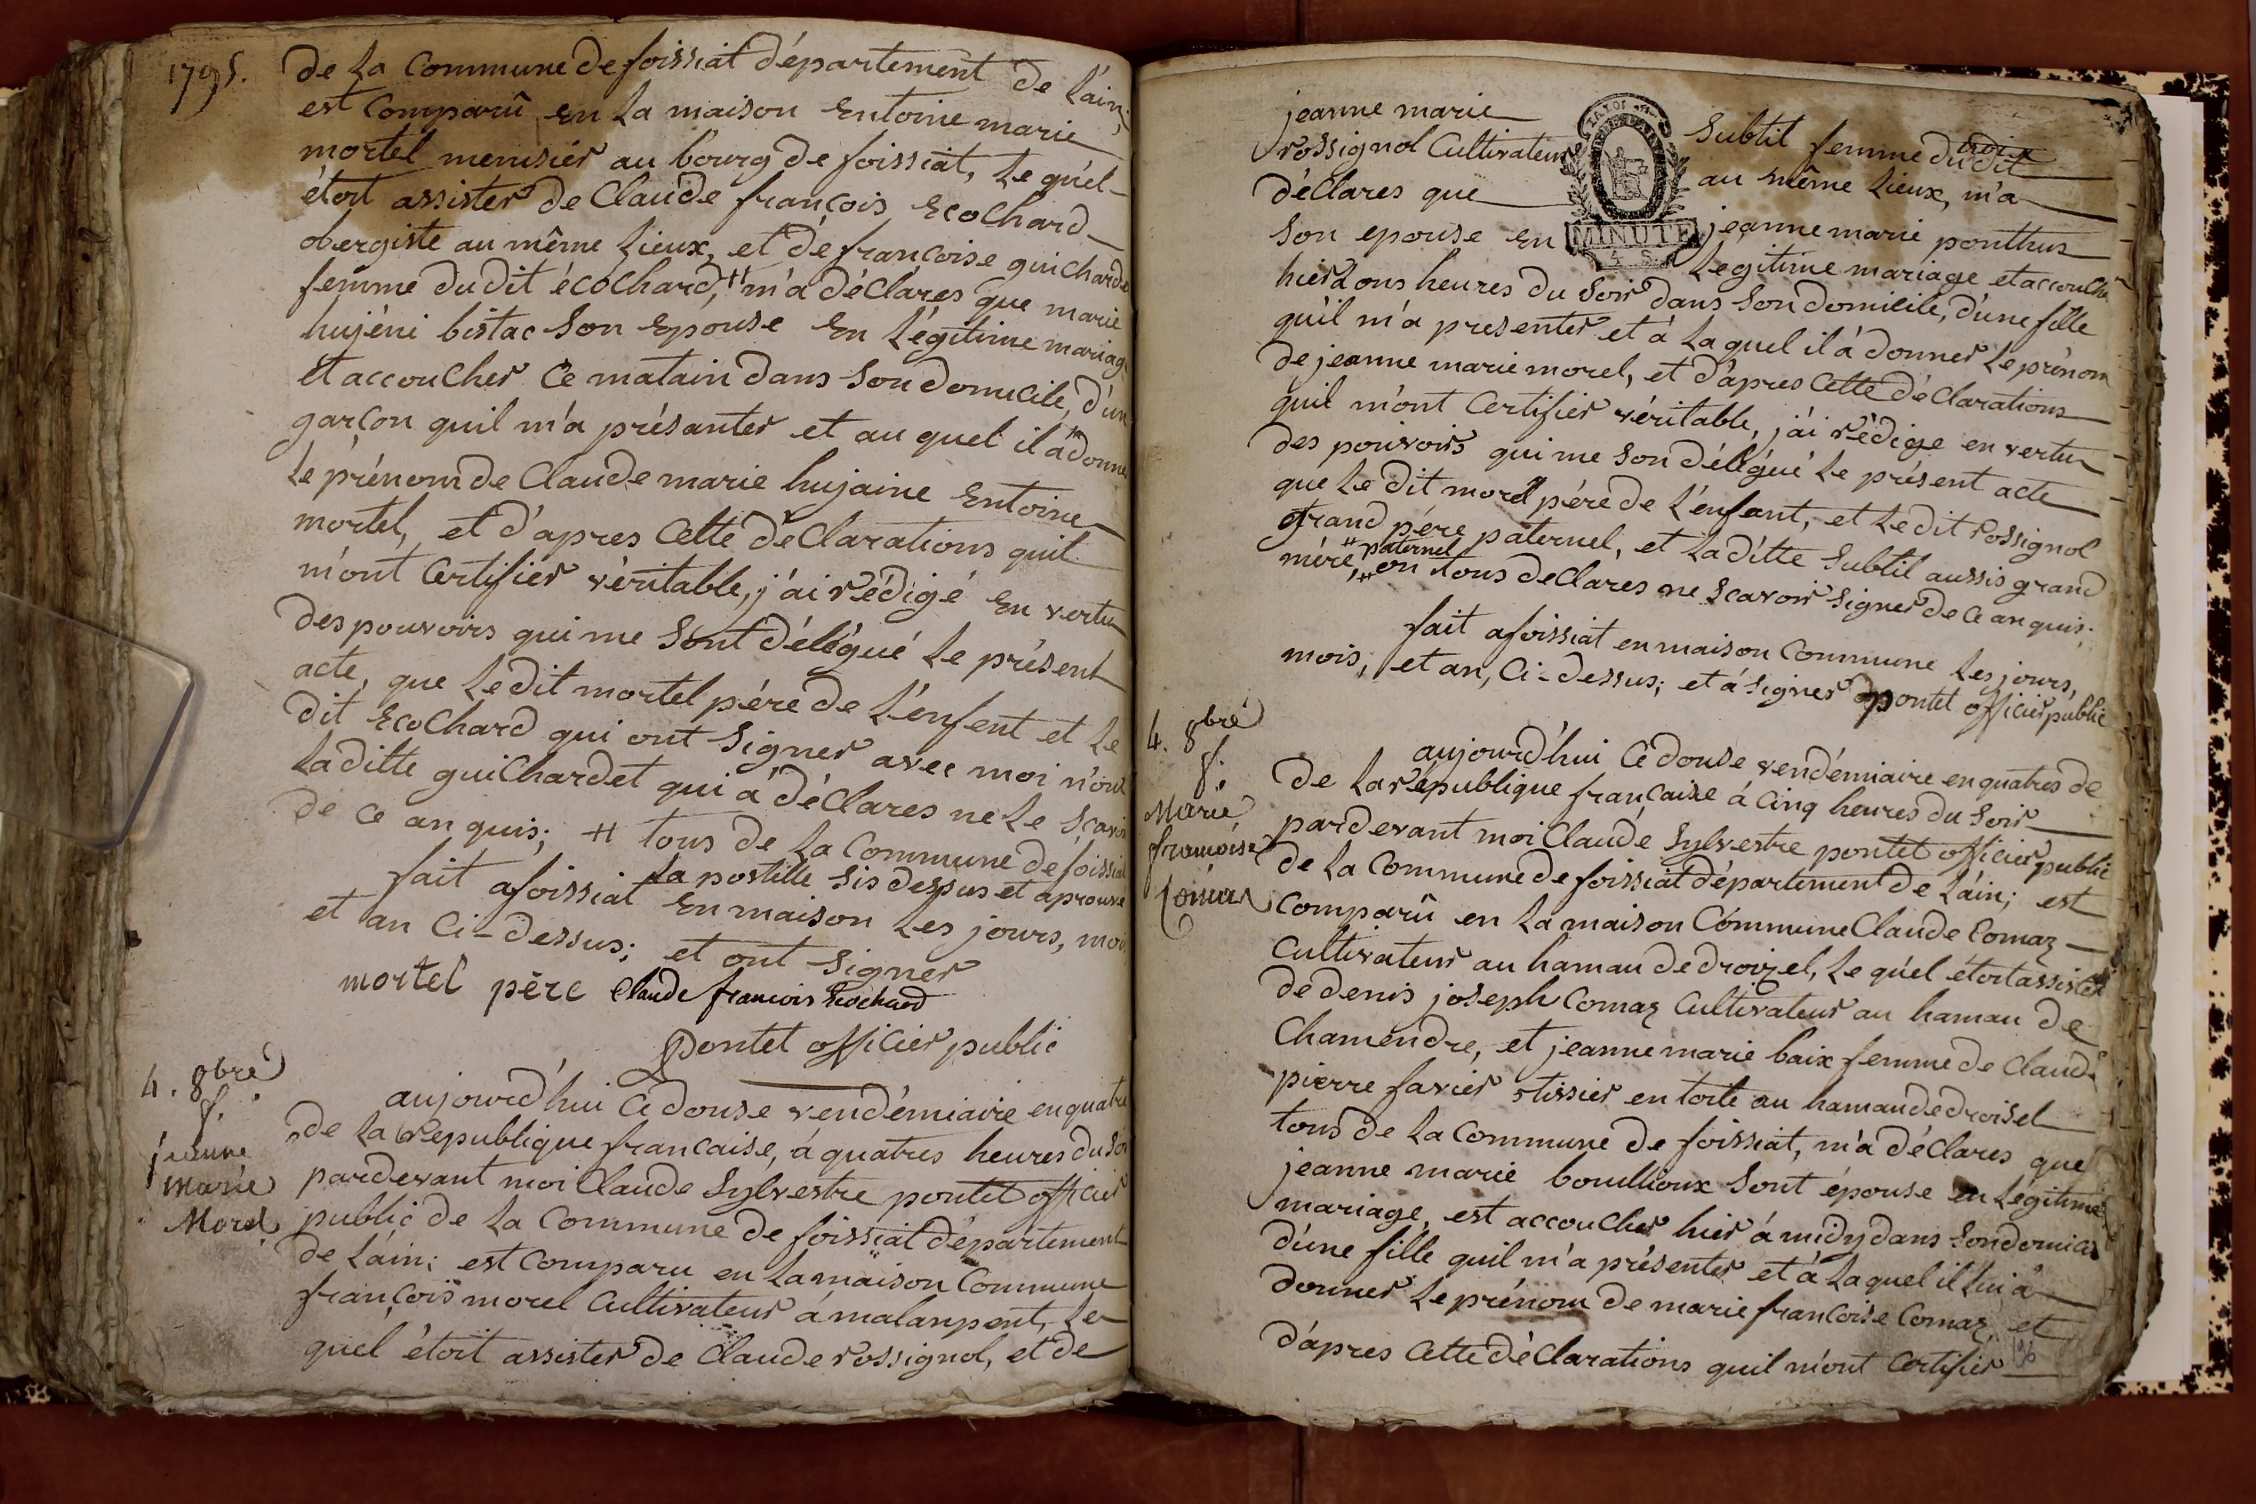 1795.
de La Commune de foissiat département de L'ain;
est Comparû en La maison Entoine marie
mortel menusiér au bourg de foissiat, Le quél
étoit assister de Claude françois Ecochard
obergiste au même Lieux, et de francoise guichardet
femme du dit écochard, # m'a déclares que marie
hujéni bistac Son Epouse En Légitime mariage
Et accoucher Ce matain dans Son domicile, d'un
garçon quil m'a présanter et au quel il à donne
Le prénom de Claude marie hujaine Entoine
mortel, et d'apres Cette déClarations quil
m'ont Certifier véritable, j'ai rédigé En vertu
des pouvoirs qui me Sont délégué Le présent
acte, que Le dit mortel pére de L'énfent et Le
dit Ecochard qui ont Signer avec moi n'on
La ditte guichardet qui à déClares ne Le Scavoir
de Ce an quis; # tous de La Commune de foissiat
La postille Sis dessus et aprouvé
fait afoissiat En maison Les jours, mois
et an Ci-dessus; et ont Signer
mortel père Claude francois Ecochard
pontet officiér public
4. 8bre
f.
jeanne
marie
Morel
aujourd'hui Ce douse vendémiaire enquatre
de La Republique francaise, á quatres heures du Soir
pardevant moi Claude Sylvestre pontet officier
public de La Commune de foissiat département
de L'ain; est Comparu en La maison Commune
françois morel Cultivateur á malanpent, Le
quel étoit assister de Claude rossignol, et de
jeanne marie Subtil femme du dit
rossignol Cultivateur au même Lieux, m'a
déClares que jeanne marie ponthus
Son epouse En Legitime mariage et accouché
hier a ons heures du Soir dans Son domicile, d'une fille
qu'il m'a presenter et á La quel il á donner Le prénom
de jeanne marie morel, et d'apres Cette déClarations
quil m'ont Certifier véritable, j'ai rédige en vertu
des pouvoirs qui me Son délégué Le présent acte
que Le dit morel pére de L'énfant, et Le dit rossignol
grand pére paternel, et La ditte Subtil aussis grand
mére, # on tous déClares ne Scavoir Signer de Ce an quis.
# paternel
fait afoissiat en maison Commune Les jours,
mois, et an, Ci-dessus; et á Signer pontet officier public
LA LOI
MINUTE
4 S.
4. 8bre
f.
Marie
françoise
Comas
aujourd'hui Ce douse vendémiaire en quatres de
de La république française á Cinq heures du Soir
pardevant moi Claude Sylvestre pontet officier public
de La Commune de foissiat département de L'ain; est
Comparû en La maison Commune Claude Comaz
Cultivateur au haman de droizel, Le quél étoit assister
de denis joseph Comaz Cultivateur au haman de
Chamendre, et jeanne marie baix femme de Claude
pierre favier tissier en toile au haman de droisel
tous de La Commune de foissiat, m'a déClares que
jeanne marie bouillioux Sont épouse en Légitime
mariage, est accoucher hier á midy dans Son domicil
d'une fille quil m'a présenter et á La quel il Lui á
donner Le prénom de marie françoise Comaz, et
d'apres Cette déClarations quil m'ont Certifier